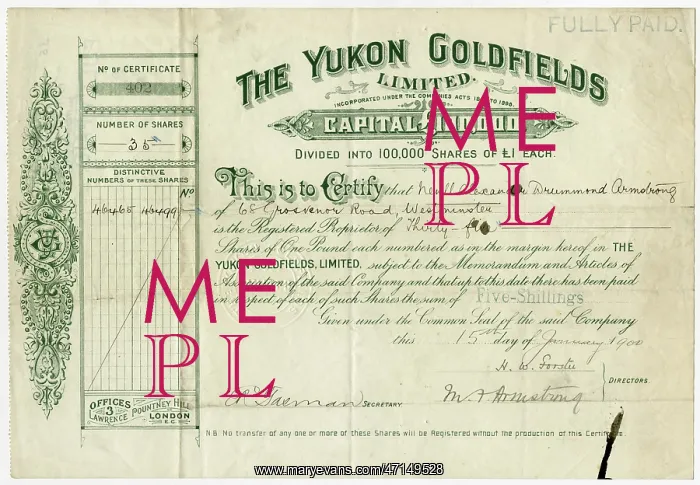 FULLY PAID.
No OF CERTIFICATE
402
NUMBER OF SHARES
35
DISTINCTIVE
NUMBERS OF THESE SHARES
No
46465 46499
THE YUKON GOLDFIELDS
LIMITED.
INCORPORATED UNDER THE COMPANIES ACTS TO 1898.
CAPITAL
DIVIDED INTO 100,000 SHARES OF £1 EACH.
This is to Certify that Drummond Armstrong
of 68 Grosvenor Road, Westminster
is the Registered Proprietor of Thirty-
Shares of One Pound each numbered as in the margin hereof in THE
YUKON GOLDFIELDS, LIMITED, subject to the Memorandum and Articles of
Association of the said Company and that up to this date there has been paid
in respect of each of such Shares the sum of Five-Shillings
Given under the Common Seal of the said Company
this 15th day of January 1900
H. W. Forster
DIRECTORS.
SECRETARY
Armstrong
OFFICES
3
LAWRENCE POUNTNEY HILL
LONDON
E.C.
N.B. No transfer of any one or more of these Shares will be Registered without the production of this Certificate.
ME
PL
ME
PL
www.maryevans.com/47149528